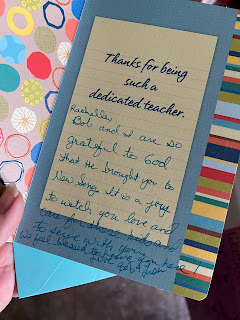 Thanks for being
such a
dedicated teacher.
Rachelle,
Bob and I are so
grateful to God
that He brought you to
New Song. It is a joy
to watch you love and
care for these kids and
to serve with you.
we feel blessed to have you here!